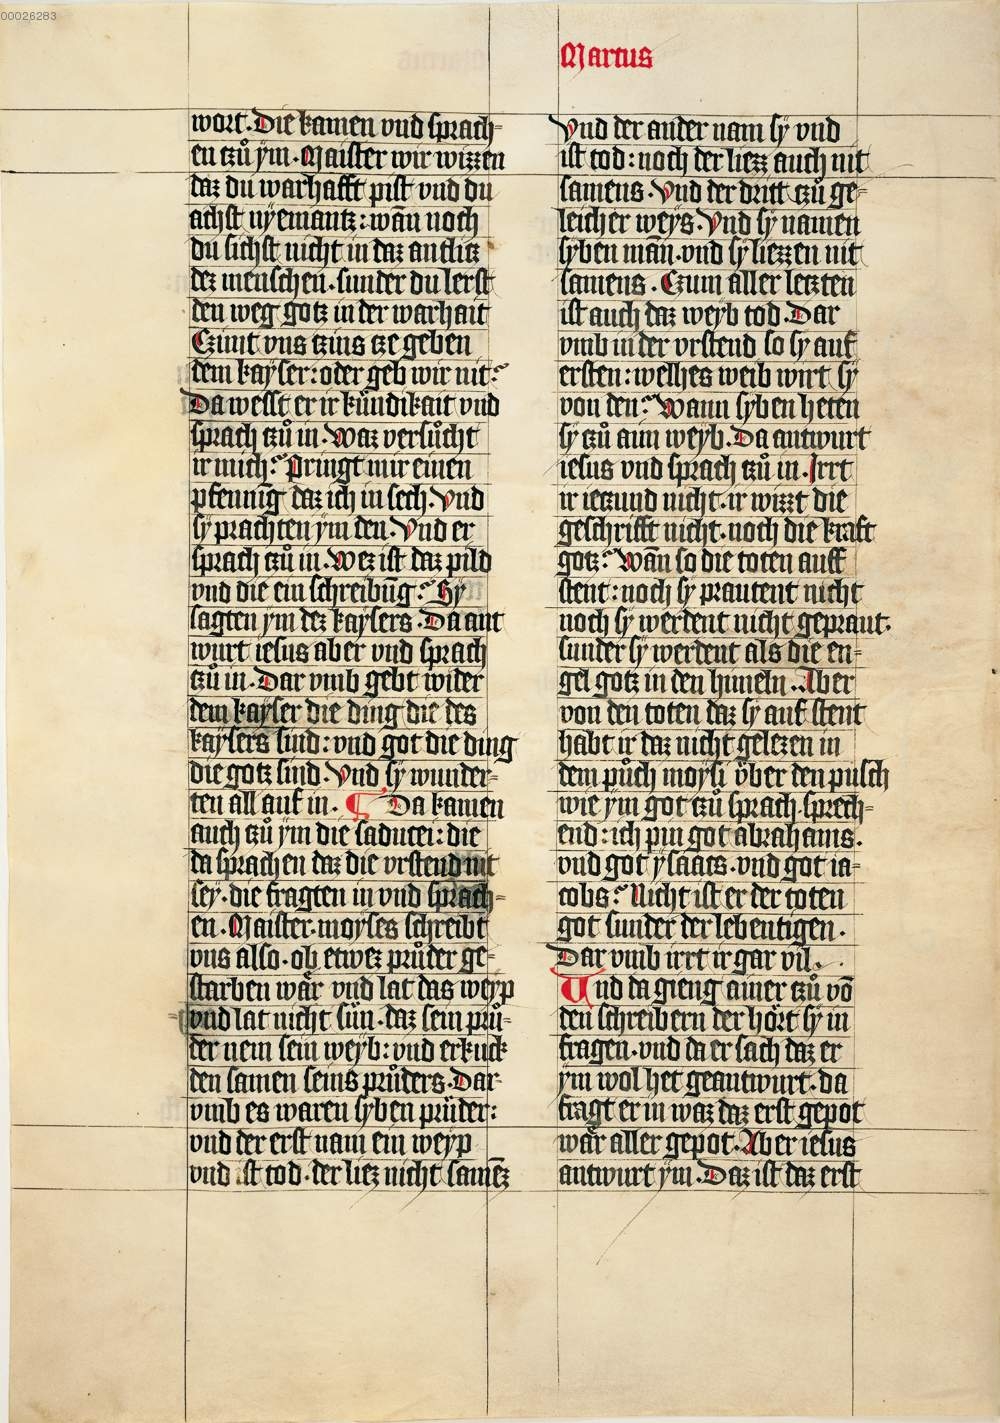 00026283
Marcus
wort. Die kamen vnd sprach=
en tzů ym. Maister wir wizzen
daz du warhafft pist vnd du
achst nyemantz: wān noch
du sichst nicht in daz antlitz
dez menschen. sunder du lerst
den weg gotz in der warhait
Czimt vns tzins tze geben
dem kayser: oder geb wir nit?
Da wesst er ir kündikait vnd
sprach tzů in. Waz versůcht
ir mich? Pringt mir einen
pfennīg daz ich in sech. Vnd
sy prachten ym den. Vnd er
sprach tzů in. Wez ist daz pild
vnd die ein schreibūg? Sy
sagten ym dez kaysers. Da ant
wurt iesus aber vnd sprach
tzů in. Dar vmb gebt wider
dem kayser die ding die des
kaysers sind: vnd got die ding
die gotz sind. Vnd sy wunder=
ten all auf in. ¶ Da kamen
auch tzů ym die saducei: die
da sprachen daz die vrstend nit
sey. die fragten in vnd sprach=
en. Maister. moyses schreibt
vns also. ob etwez průder ge=
starben wär vnd lat das weyp
vnd lat nicht sün. daz sein prů=
der nem sein weyb: vnd erkuck
den samen seins průders. Dar=
vmb es waren syben prüder:
vnd der erst nam ein weyp
vnd ist tod. der liez nicht samēz
Vnd der ander nam sy vnd
ist tod: noch der liezz auch nit
samens. Vnd der dritt tzů ge=
leicher weys. Vnd sy namen
syben mān. vnd sy liezzen nit
samens. Czum aller letzten
ist auch daz weyb tod. Dar
vmb in der vrstend so sy auf
ersten: welhes weib wirt sy
von den? Wann syben heten
sy tzů aim weyb. Da antwurt
iesus vnd sprach tzů in. Irrt
ir ietzund nicht. ir wizzt die
geschrifft nicht. noch die kraft
gotz? Wān so die toten auff
stent: noch sy prautent nicht
noch sy werdent nicht gepraut.
sunder sy werdent als die en=
gel gotz in den himeln. Aber
von den toten daz sy auf stent
habt ir daz nicht gelezen in
dem půch moysi über den pusch
wie ym got tzů sprach. sprech=
end: ich pin got abrahams.
vnd got ysaacs. vnd got ia=
cobs? Nicht ist er der toten
got sunder der lebentigen.
Dar vmb irrt ir gar vil.
Vnd da gieng ainer tzů vō
den schreibern der hört sy in
fragen. vnd da er sach daz er
ym wol het geantwurt. da
fragt er in waz daz erst gepot
wär aller gepot. Aber iesus
antwurt ym. Daz ist daz erst